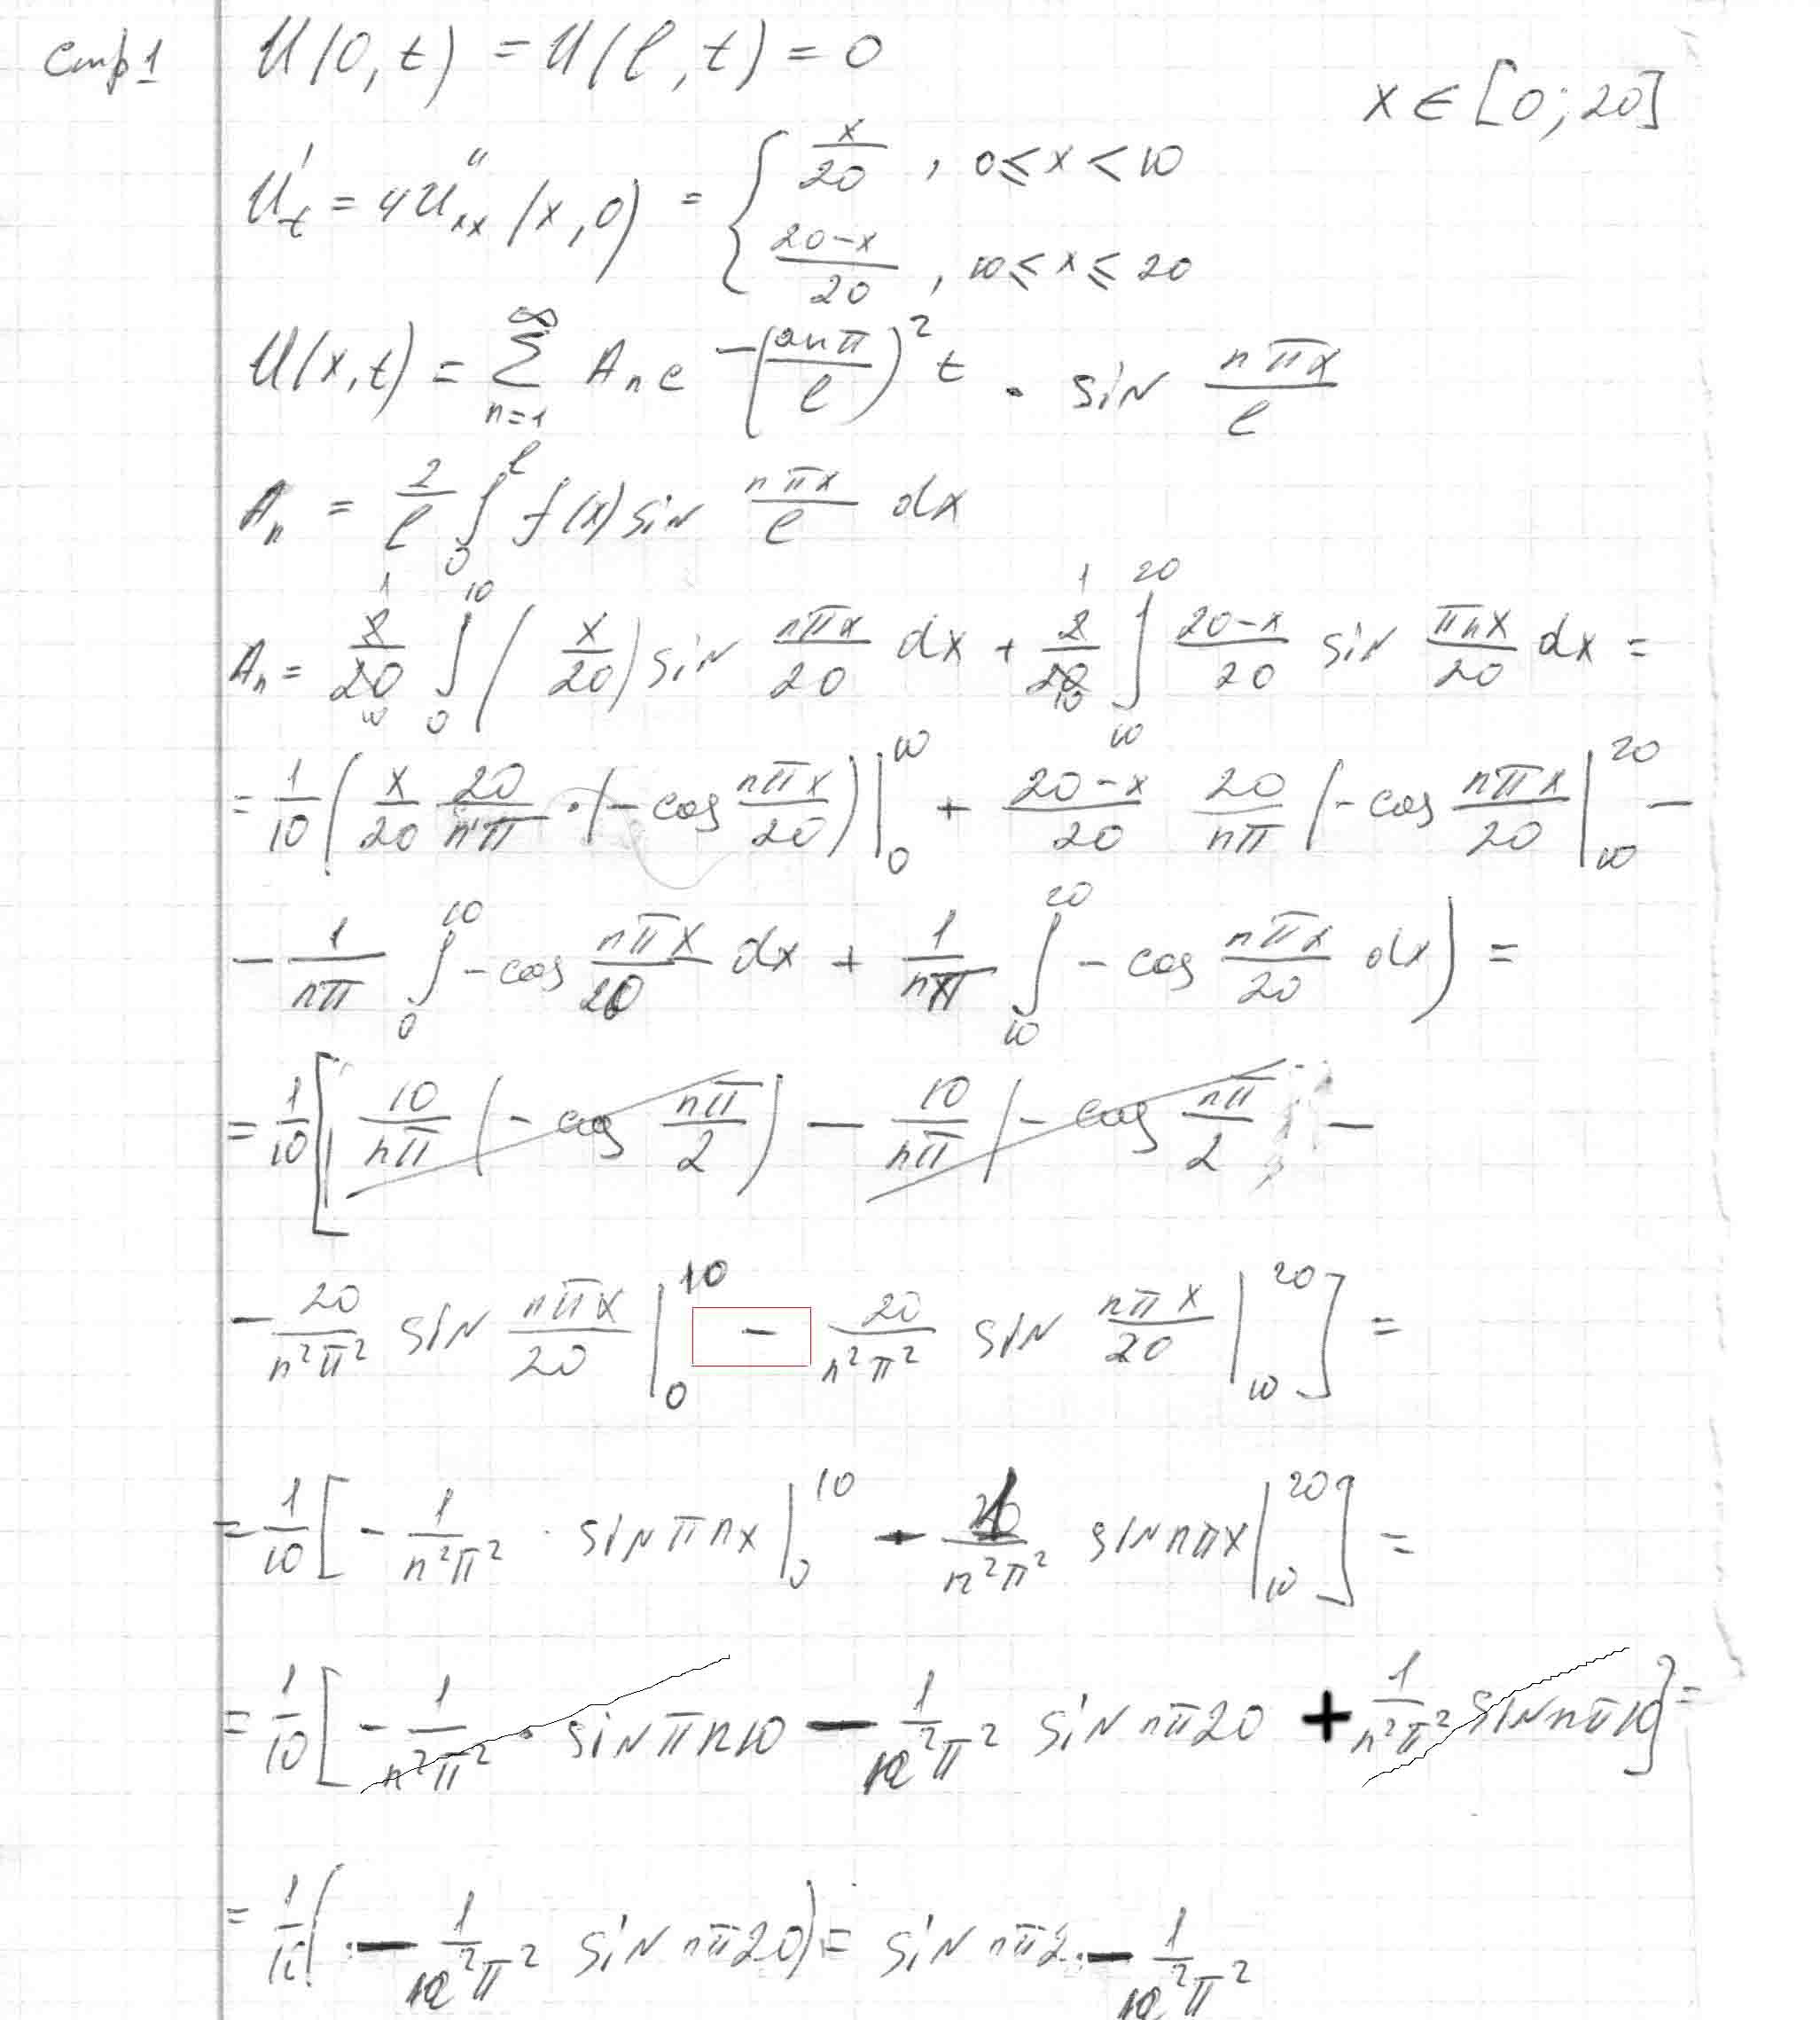 стр 1
U(0, t) = U(l, t) = 0
x ∈ [0; 20]
U't = 4U''xx (x, 0) = { x/20 , 0 ≤ x < 10
20-x/20 , 10 ≤ x ≤ 20
U(x, t) = ∑_{n=1}^{∞} Aₙ e^{-(anπ/l)² t} · sin nπx/l
Aₙ = 2/l ∫_0^l f(x) sin nπx/l dx
Aₙ = 2/20 ∫_0^10 (x/20) sin nπx/20 dx + 2/20 ∫_10^20 20-x/20 sin πnx/20 dx =
= 1/10 (x/20 20/nπ · (- cos nπx/20)|_0^10 + 20-x/20 20/nπ (- cos nπx/20 |_10^20 -
- 1/nπ ∫_0^10 - cos nπx/20 dx + 1/nπ ∫_10^20 - cos nπx/20 dx) =
= 1/10 [ 10/nπ (- cos nπ/2) - 10/nπ (- cos nπ/2 -
- 20/n²π² sin nπx/20 |_0^10 - 20/n²π² sin nπx/20 |_10^20 ] =
= 1/10 [ - 1/n²π² · sin πnx |_0^10 - 1/n²π² sin nπx |_10^20 ] =
= 1/10 [ - 1/n²π² · sin πn10 - 1/n²π² sin nπ20 + 1/n²π² sin nπ10 ] =
= 1/10 ( - 1/n²π² sin nπ20) = sin nπ2 · - 1/n²π²